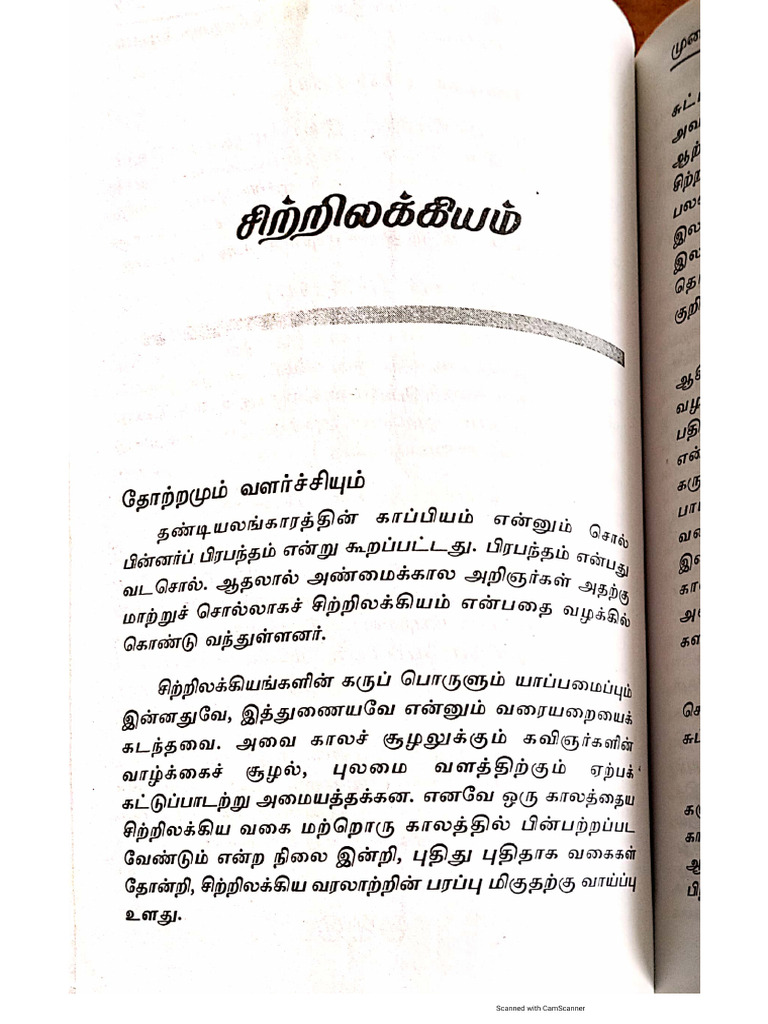 சிற்றிலக்கியம்
தோற்றமும் வளர்ச்சியும்
தண்டியலங்காரத்தின் காப்பியம் என்னும் சொல்
பின்னர்ப் பிரபந்தம் என்று கூறப்பட்டது. பிரபந்தம் என்பது
வடசொல். ஆதலால் அண்மைக்கால அறிஞர்கள் அதற்கு
மாற்றுச் சொல்லாகச் சிற்றிலக்கியம் என்பதை வழக்கில்
கொண்டு வந்துள்ளனர்.
சிற்றிலக்கியங்களின் கருப் பொருளும் யாப்பமைப்பும்
இன்னதுவே, இத்துணையவே என்னும் வரையறையைக்
கடந்தவை. அவை காலச் சூழலுக்கும் கவிஞர்களின்
வாழ்க்கைச் சூழல், புலமை வளத்திற்கும் ஏற்பக்
கட்டுப்பாடற்று அமையத்தக்கன. எனவே ஒரு காலத்தைய
சிற்றிலக்கிய வகை மற்றொரு காலத்தில் பின்பற்றப்பட
வேண்டும் என்ற நிலை இன்றி, புதிது புதிதாக வகைகள்
தோன்றி, சிற்றிலக்கிய வரலாற்றின் பரப்பு மிகுதற்கு வாய்ப்பு
உளது.
Scanned with CamScanner